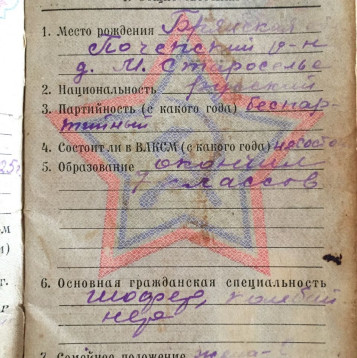 1. Место рождения Брянская об
Почепский р-н
д. М. Староселье
2. Национальность русский
3. Партийность (с какого года) беспар-
тийный
4. Состоит ли в ВЛКСМ (с какого года) несосто
5. Образование окончил
7 классов
6. Основная гражданская специальность
шофер, комбай
нер
7. Семейное положение жена-